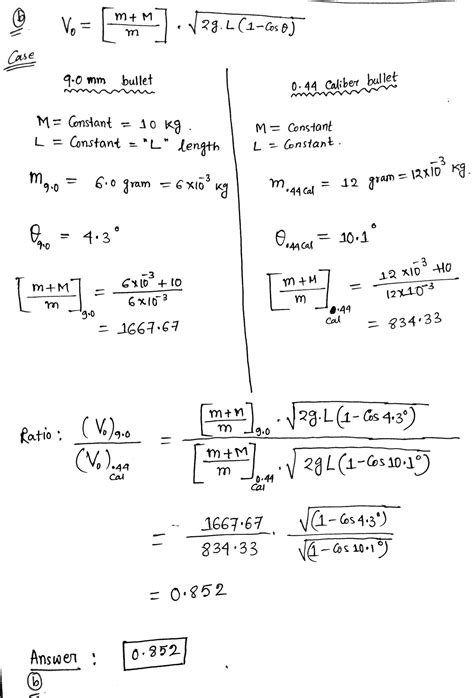 ⓑ V₀ = [m+M / m] · √2g.L(1-Cosθ)
Case
9.0 mm bullet
M = Constant = 10 kg.
L = Constant = "L" length
m9.0 = 6.0 gram = 6×10⁻³ kg
θ9.0 = 4.3°
[m+M / m]9.0 = 6×10⁻³ + 10 / 6×10⁻³
= 1667.67
0.44 Caliber bullet
M = Constant
L = Constant.
m.44cal = 12 gram = 12×10⁻³ kg.
θ.44cal = 10.1°
[m+M / m]0.49 Cal = 12×10⁻³ +10 / 12×10⁻³
= 834.33
Ratio : (V₀)9.0 / (V₀).44 Cal = [m+M / m]9.0 · √2g.L(1-Cos 4.3°) / [m+M / m]0.44 Cal · √2gL(1-Cos 10.1°)
= 1667.67 / 834.33 · √(1-Cos 4.3°) / √(1-Cos 10.1°)
= 0.852
Answer : 0.852
ⓑ